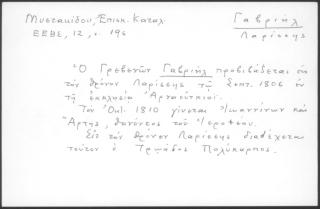 Μυστακίδου, Ἐπισκ. Κατάλ.
ΕΕΒΣ, 12, σ. 196
Γαβριὴλ
Λαρίσσης
Ὁ Γρεβενῶν Γαβριὴλ προβιβάζεται εἰς
τὸν θρόνον Λαρίσσης τῷ Σεπτ. 1806 ἐν
τῇ ἐκκλησίᾳ
Τὸν Ὀκτ. 1810 γίνεται Ἰωαννίνων καὶ
Ἄρτης, θανόντος τοῦ Ἱεροθέου.
Εἰς τὸν θρόνον Λαρίσσης διαδέχεται
τοῦτον ὁ Πολύκαρπος.